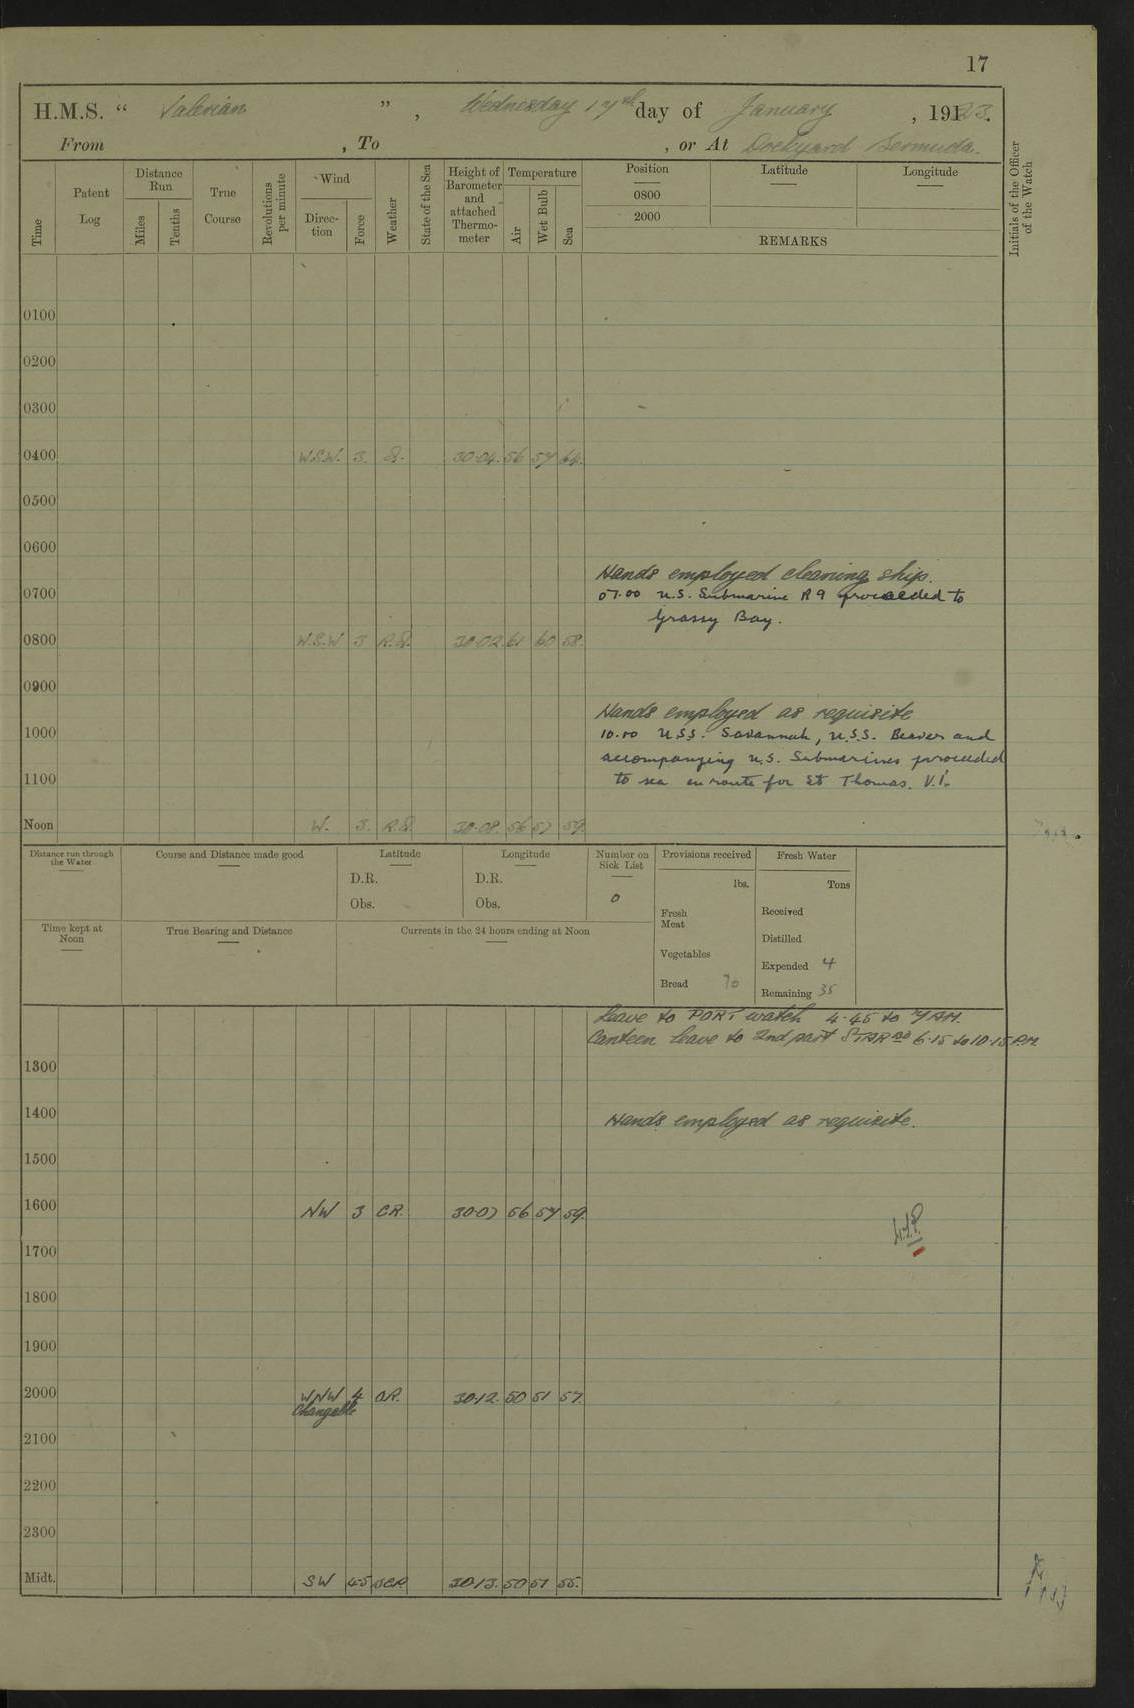 17
H.M.S. “ Valerian ” , Wednesday 17th day of January , 1923.
From , To , or At Dockyard Bermuda.
Time
Patent Log
Distance Run
Miles
Tenths
True Course
Revolutions per minute
Wind
Direc-tion
Force
Weather
State of the Sea
Height of Barometer and attached Thermo-meter
Temperature
Air
Wet Bulb
Sea
Position
0800
2000
Latitude
Longitude
REMARKS
Initials of the Officer of the Watch
0100
0200
0300
0400 W.S.W. 3. 30.04. 56 57 64.
0500
0600
Hands employed cleaning ship.
0700 07.00 U.S. Submarine R 9 proceeded to
Grassy Bay.
0800 W.S.W 3 30.02 61 60 58.
0900
Hands employed as requisite
1000 10.00 U.S.S. Savannah, U.S.S. Beaver and
accompanying U.S. Submarines proceeded
1100 to sea en route for St Thomas. V.I.
Noon W. 3. 30.08. 56 57 59.
Distance run through the Water
Course and Distance made good
Latitude
D.R.
Obs.
Longitude
D.R.
Obs.
Number on Sick List
0
Provisions received
lbs.
Fresh Meat
Vegetables
Bread 70
Fresh Water
Tons
Received
Distilled
Expended 4
Remaining 35
Time kept at Noon
True Bearing and Distance
Currents in the 24 hours ending at Noon
Leave to PORT watch 4.45 to 7 AM.
Canteen leave to 2nd part STARBD 6.15 to 10.15 P.M.
1300
1400 Hands employed as requisite.
1500
1600 NW 3 CR. 30.07 56 57 59.
1700
1800
1900
2000 WNW 4 OR. 30.12. 50 51 57.
Changable
2100
2200
2300
Midt. SW 45 30.13. 50 51 55.